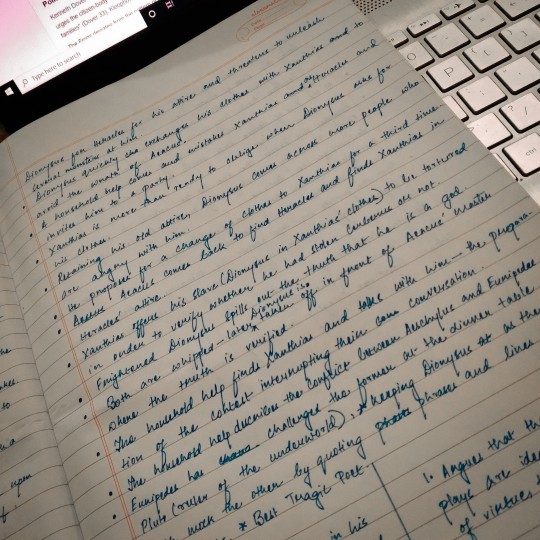 Kenneth Dover
urges the citizen-body to
families" (Dover 33).
Type here to search
Dionysus for Heracles for his attire and threatens to unleash
several monsters at him.
Dionysus quickly exchanges his clothes with Xanthias and to
avoid the wrath of Aeacus.
A household help comes and mistakes Xanthias as Heracles and
invites him to a party.
Xanthias is more than ready to oblige when Dionysus asks for
his clothes.
Regaining his old attire, Dionysus comes across more people who
are angry with him.
He proposes for a change of clothes to Xanthias for a third time.
Aeacus comes back to find Heracles and finds Xanthias in
Heracles' attire.
Xanthias offers his slave (Dionysus in Xanthias' clothes) to be tortured
in order to verify whether he had stolen Cerberus or not.
Frightened Dionysus spills out the truth that he is a god.
Both are whipped - later Dionysus is taken off in front of Aeacus' master
where the truth is verified.
The household help finds Xanthias and talks with him — the prepara-
tion of the contest interrupting their conversation.
The household help describes the conflict between Aeschylus and Euripides
Euripides has challenged the former at the dinner table
Pluto (ruler of the underworld), * keeping Dionysus as the
mock the other by quoting phrases and lines
* Best Tragic Poet
in his
1. Argues that th
plays are ide
of virtues,
upon